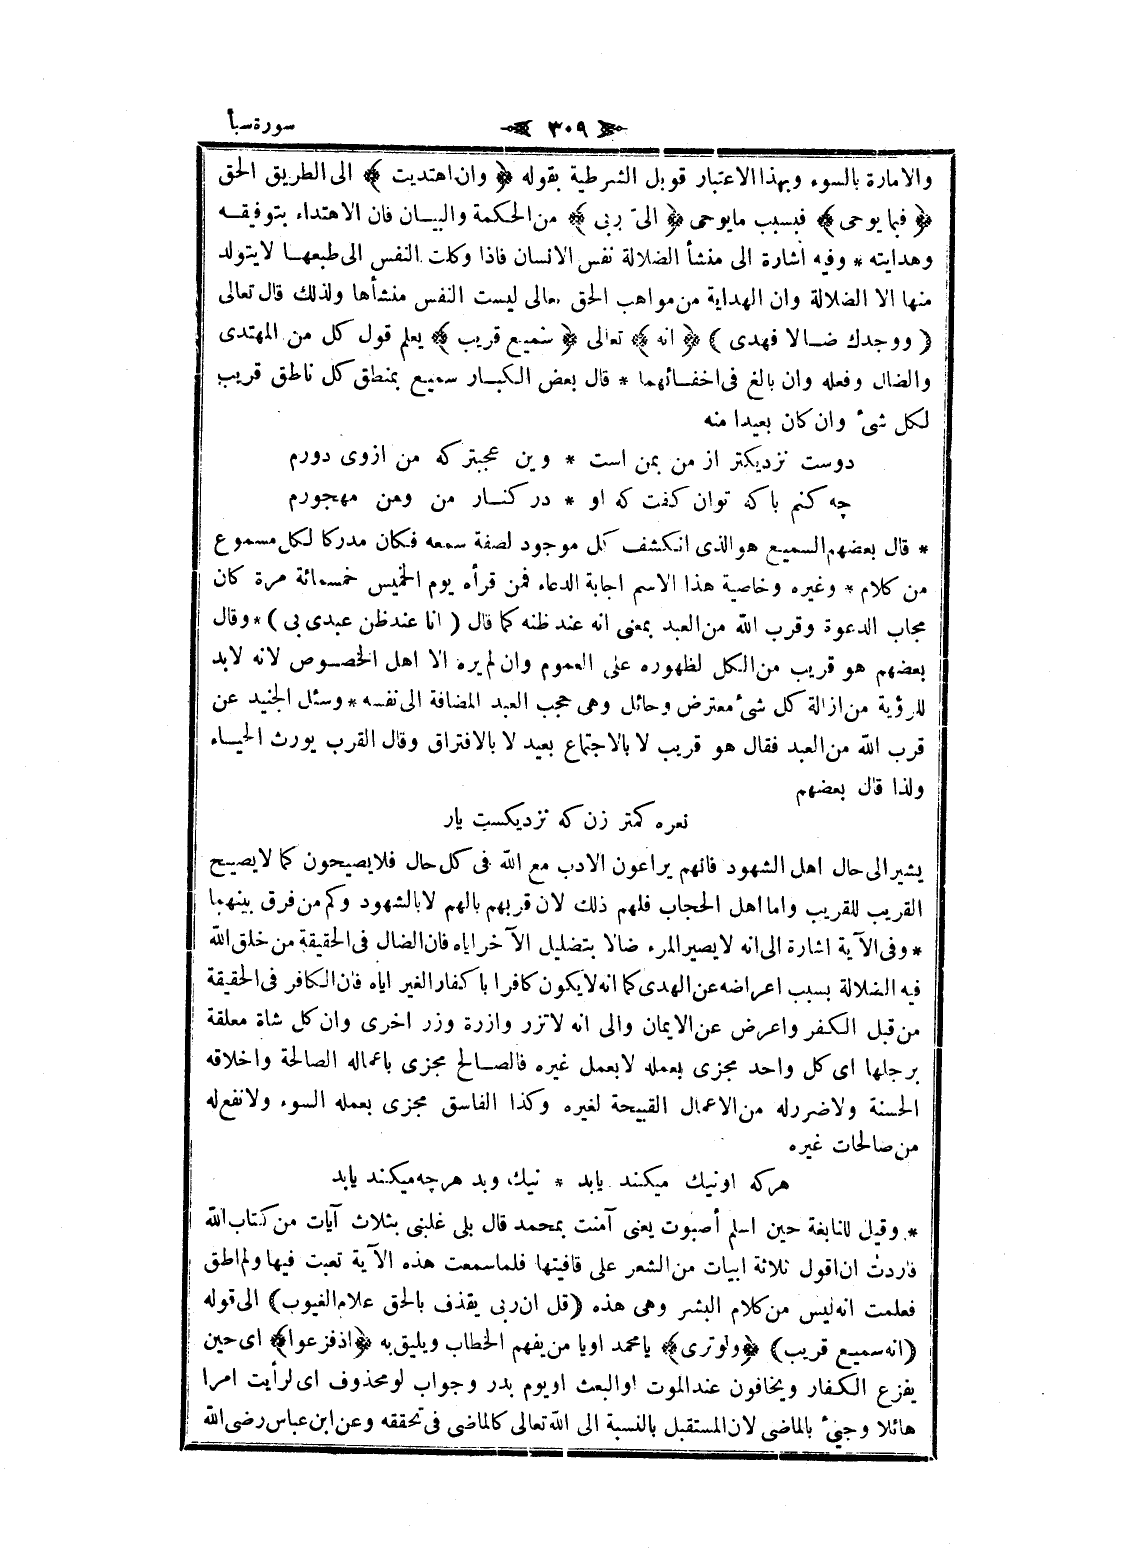 سورة سبأ
٣٠٩
والامارة بالسوء وبهذا الاعتبار قوبل الشرطية بقوله ﴿ وان اهتديت ﴾ الى الطريق الحق
﴿ فبما يوحى ﴾ فبسبب مايوحى ﴿ الىّ ربى ﴾ من الحكمة والبيـان فان الاهتداء بتوفيقـه
وهدايته * وفيه اشارة الى منشأ الضلالة نفس الانسان فاذا وكلت النفس الى طبعهـا لايتولد
منها الا الضلالة وان الهداية من مواهب الحق تعالى ليست النفس منشأها ولذلك قال تعالى
( ووجدك ضـالا فهدى ) ﴿ انه ﴾ تعالى ﴿ سميع قريب ﴾ يعلم قول كل من المهتدى
والضال وفعله وان بالغ فى اخفـائهما * قال بعض الكبـار سميع بمنطق كل ناطق قريب
لكل شىء وان كان بعيدا منه
دوست نزديكتر از من بمن است * وين عجبتر كه من ازوى دورم
چه كنم با كه توان كفت كه او * در كنـار من ومن مهجورم
* قال بعضهم السميع هو الذى انكشف كل موجود لصفة سمعه فكان مدركا لكل مسموع
من كلام * وغيره وخاصية هذا الاسم اجابة الدعاء فمن قرأه يوم الخميس خمسمائة مرة كان
مجاب الدعوة وقرب الله من العبد بمعنى انه عند ظنه كما قال ( انا عند ظن عبدى بى ) * وقال
بعضهم هو قريب من الكل لظهوره على العموم وان لم يره الا اهل الخصـوص لانه لابد
للرؤية من ازالة كل شىء معترض وحائل وهى حجب العبد المضافة الى نفسه * وسئل الجنيد عن
قرب الله من العبد فقال هو قريب لا بالاجتماع بعيد لا بالافتراق وقال القرب يورث الحيـاء
ولذا قال بعضهم
نعره كمتر زن كه نزديكست يار
يشير الى حال اهل الشهود فانهم يراعون الادب مع الله فى كل حال فلا يصيحون كما لا يصيـح
القريب للقريب واما اهل الحجاب فلهم ذلك لان قربهم بالهم لا بالشهود وكم من فرق بينهما
* وفى الآية اشارة الى انه لا يصير المرء ضالا بتضليل الآخر اياه فان الضال فى الحقيقة من خلق الله
فيه الضلالة بسبب اعراضه عن الهدى كما انه لا يكون كافرا باكفار الغير اياه فان الكافر فى الحقيقة
من قبل الكفر واعرض عن الايمان والى انه لاتزر وازرة وزر اخرى وان كل شاة معلقة
برجلها اى كل واحد مجزى بعمله لا بعمل غيره فالصـالح مجزى باعماله الصالحة واخلاقه
الحسنة ولا ضرر له من الاعمال القبيحة لغيره وكذا الفاسق مجزى بعمله السوء ولا نفع له
من صالحات غيره
هركه او نيك ميكند يابد * نيك وبد هرچه ميكند يابد
* وقيل للنابغة حين اسلم أصبوت يعنى آمنت بمحمد قال بلى غلبنى بثلاث آيات من كتاب الله
فاردت ان اقول ثلاثة ابيات من الشعر على قافيتها فلما سمعت هذه الآية تعبت فيها ولم اطق
فعلمت انه ليس من كلام البشر وهى هذه ( قل ان ربى يقذف بالحق علام الغيوب ) الى قوله
( انه سميع قريب ) ﴿ ولو ترى ﴾ يا محمد او يا من يفهم الخطاب ويليق به ﴿ اذ فزعوا ﴾ اى حين
يفزع الكفار ويخافون عند الموت او البعث او يوم بدر وجواب لو محذوف اى لرأيت امرا
هائلا وجىء بالماضى لان المستقبل بالنسبة الى الله تعالى كالماضى فى تحققه وعن ابن عباس رضى الله